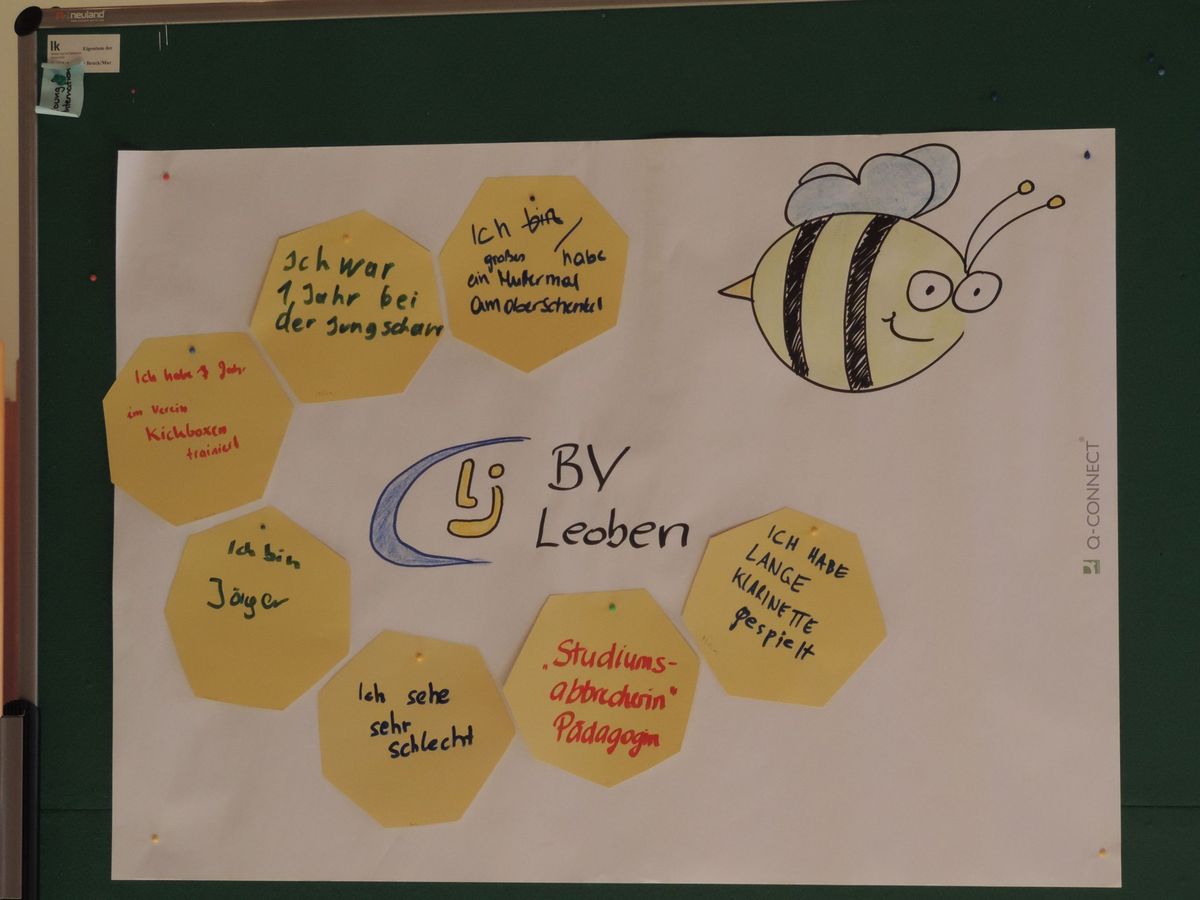 neuland
lk
Eigentum der
Bruck/Mur
Young
International
Ich bin /
großes habe
ein Muttermal
am Oberschenkel
Ich war
1 Jahr bei
der Jungscharr
Ich habe 1 Jahr
im Verein
Kickboxen
trainiert
lj BV
Leoben
Q-CONNECT®
Ich bin
Jäger
ICH HABE
LANGE
KLARINETTE
gespielt
„Studiums-
abbrecherin"
Pädagogin
Ich sehe
sehr
schlecht